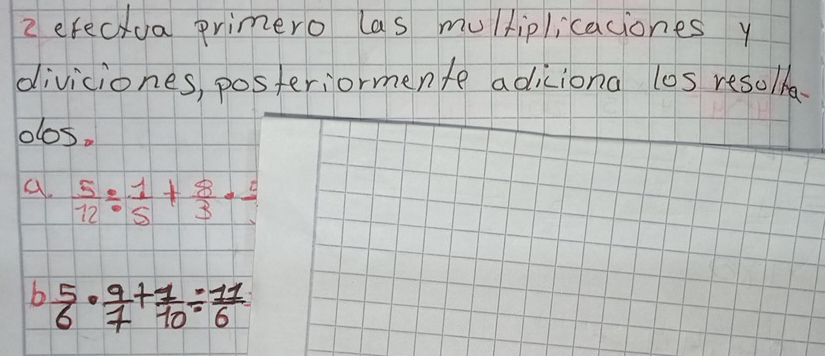 2 efectua primero las multiplicaciones y
diviciones, posteriormente adiciona los resulta-
dos.
a. 5/12 ÷ 1/5 + 8/3 ·
b 5/6 · 9/7 + 7/10 ÷ 11/6